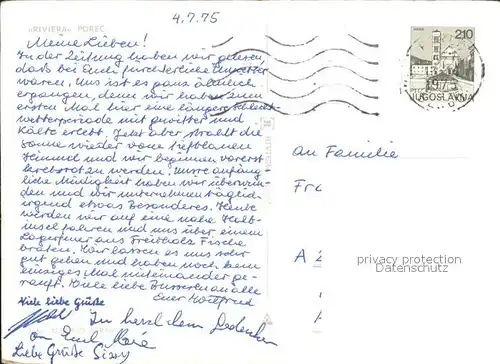 4.7.75
»RIVIERA« POREČ
Meine Lieben!
In der Zeitung haben wir gelesen,
daß bei Euch fürchterliche Unwetter
waren. Uns ist es ganz ähnlich
ergangen, denn wir haben zum
ersten Mal hier eine längere Schlecht-
wetterperiode mit Gewitter und
Kälte erlebt. Jetzt aber strahlt die
Sonne wieder vom tiefblauen
Himmel und wir beginnen vorerst
krebsrot zu werden. Unsre anfäng-
liche Müdigkeit haben wir überwun-
den und wir unternehmen täglich
irgend etwas Besonderes. Heute
werden wir auf eine nahe Halb-
insel fahren und uns über einem
Lagerfeuer aus Treibholz Fische
braten. Wir lassen es uns sehr
gut gehen und haben noch kein
einziges Mal miteinander ge-
rauft. Viele liebe Busserln an alle
Euer Wolfried
Viele liebe Grüße
In herzlichem Gedenken
Liebe Grüße Sissy
2.10
1975
JUGOSLAVIJA
An Familie
Fr
A 2
privacy protection
Datenschutz